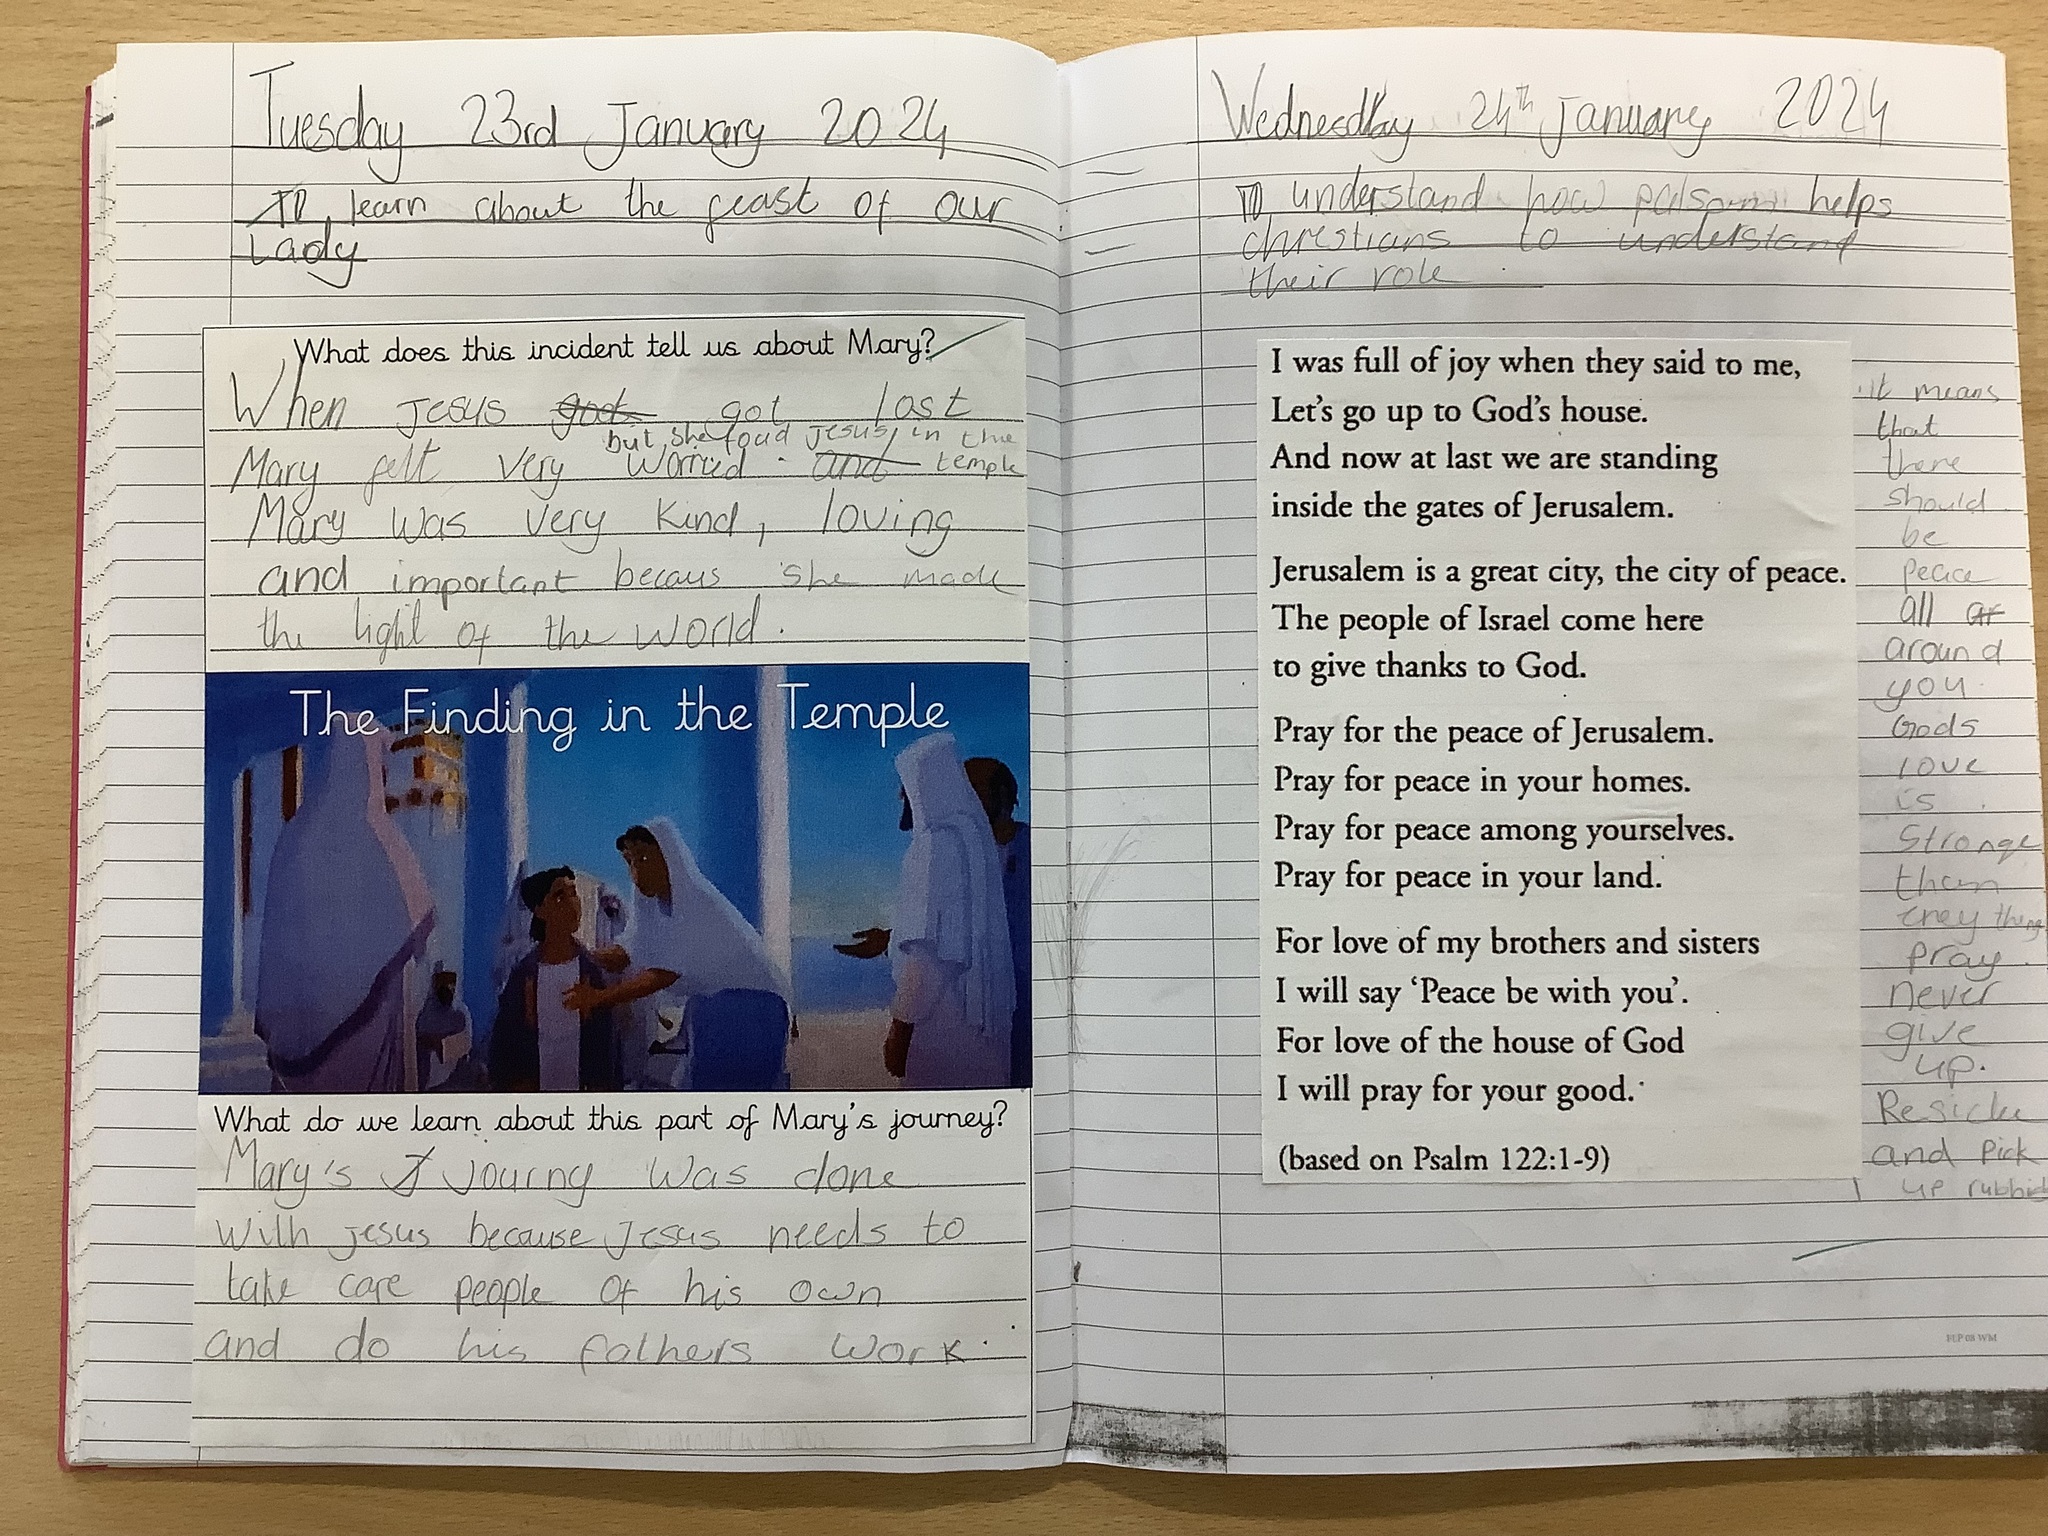 Tuesday 23rd January 2024
TO learn about the feast of our
Lady
What does this incident tell us about Mary?
When Jesus got lost
but she foud Jesus in the
Mary felt very worried. and temple
Mary was very kind, loving
and important becaus she made
the light of the world.
The Finding in the Temple
What do we learn about this part of Mary's journey?
Mary's Journy was done
with Jesus because Jesus needs to
take care people of his own
and do his fathers work.
Wednesday 24th January 2024
TO understand how helps
christians to understand
their role.
I was full of joy when they said to me,
Let's go up to God's house.
And now at last we are standing
inside the gates of Jerusalem.
Jerusalem is a great city, the city of peace.
The people of Israel come here
to give thanks to God.
Pray for the peace of Jerusalem.
Pray for peace in your homes.
Pray for peace among yourselves.
Pray for peace in your land.
For love of my brothers and sisters
I will say 'Peace be with you'.
For love of the house of God
I will pray for your good.
(based on Psalm 122:1-9)
it means
that
there
should
be
peace
all ar
around
you.
Gods
love
is
Stronge
then
pray.
never
give
up.
and pick
up
FLP 08 WM